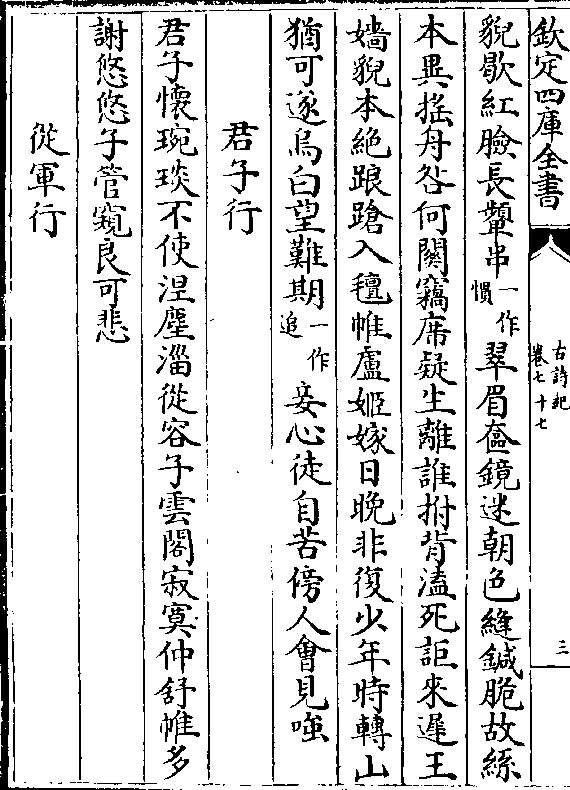 欽定四庫全書
古詩紀
卷七十七
三
貌歇紅臉長顰串一作慣翠眉奩鏡迷朝色縫鍼脆故絲
本異揺舟咎何關竊席疑生離誰拊背溘死詎來遲王
嬙貌本絶踉蹌入氊帷盧姬嫁日晩非復少年時轉山
猶可遂烏白望難期一作追妾心徒自苦傍人會見嗤
君子行
君子懷琬琰不使涅塵淄從容子雲閣寂寞仲舒帷多
謝悠悠子管窺良可悲
從軍行